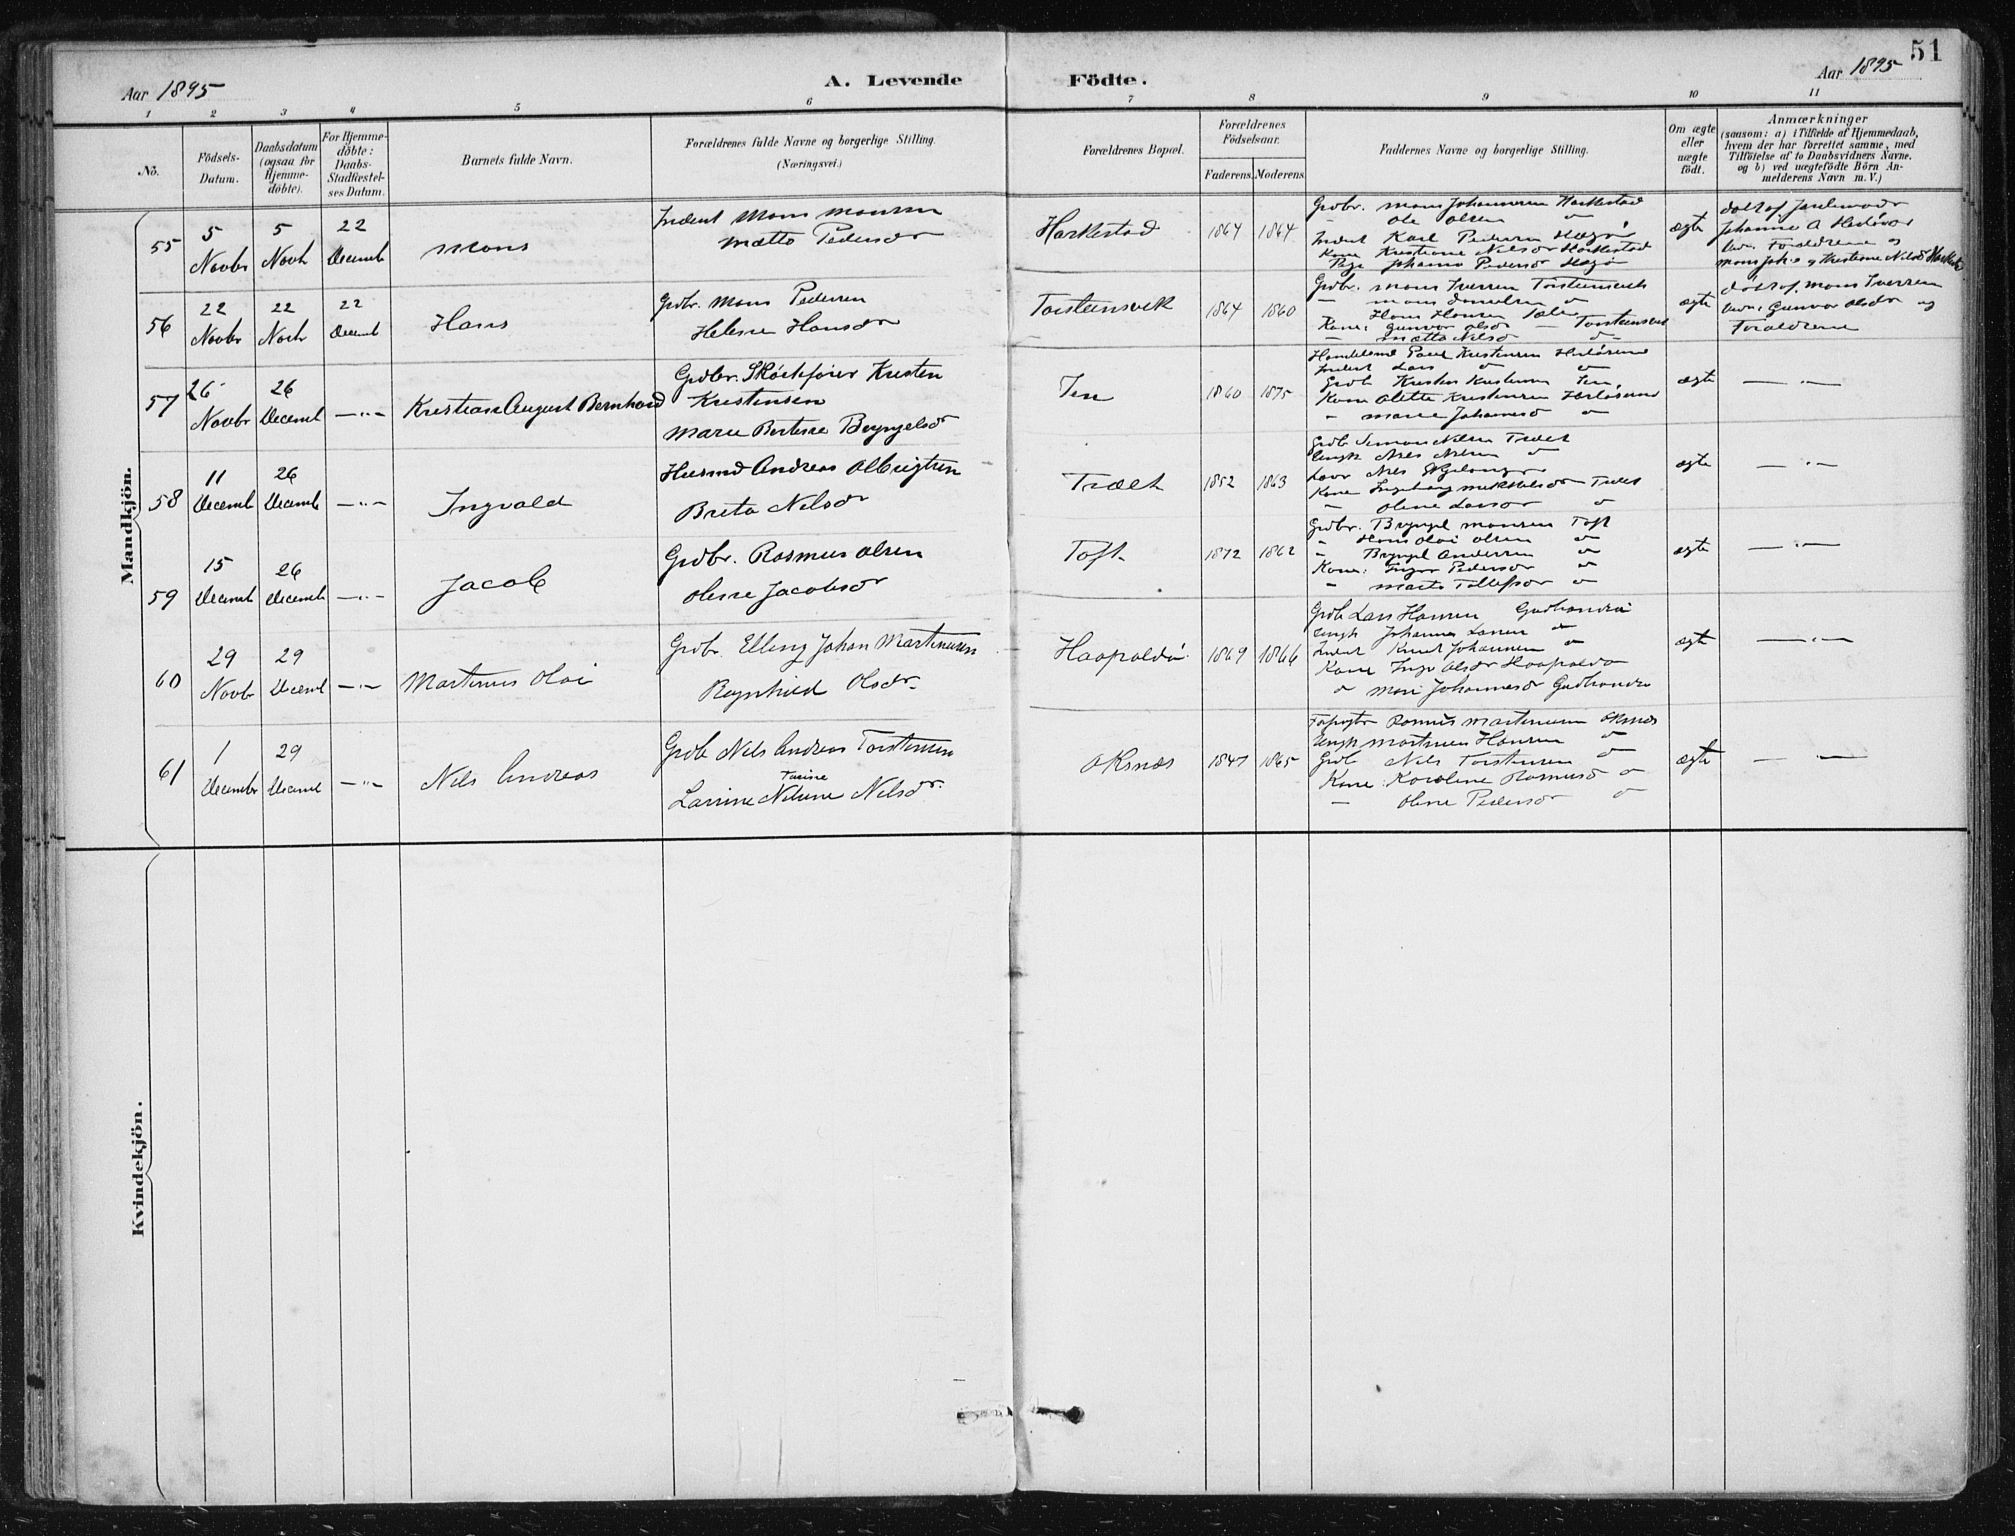 51
Aar 1895
A. Levende
Födte.
Aar 1895
1 2 3 4 5 6 7 8 9 10 11
No.
Födsels-
Datum.
Daabsdatum
(ogsaa for
Hjemme-
döbte).
For Hjemme-
döbte:
Daabs-
Stadfæstel-
ses Datum.
Barnets fulde Navn.
Forældrenes fulde Navne og borgerlige Stilling.
(Næringsvei.)
Forældrenes Bopæl.
Forældrenes
Födselsaar.
Faderens. Moderens.
Faddernes Navne og borgerlige Stilling.
Om ægte
eller
uægte
födt.
Anmærkninger
(saasom: a) i Tilfælde af Hjemmedaab,
hvem der har forrettet samme, med
Tilföielse af to Daabsvidners Navne.
og b) ved uægtefödte Börn An-
melderens Navn m. V.)
Mandkjön.
55
5
Novbr
5
Novb
22
Decemb
Mons
Inderst Mons Monsen
Mætte Pedersdr
Harkestad
1864 1864
Grdbr. Mons Johannesen Harkestad
— Ole Olsen do
Inderst Karl Pedersen Hægø
Kone Kristiane Nilsdr Harkestad
Pige Johanna Pedersdr Hægø
ægte
døbt af Jordemoder
Johanne A
Vidn. Forældrene og
56
22
Novbr
22
Novb
22
Decemb
Hans
Grdbr. Mons Pedersen
Helene Hansdr
Torsteinsvik
1864 1860
Grdbr. Mons Iversen Torsteinsvik
— Mons Danielsen do
— Hans Hansen
Kone: Gunvor Olsdr — Torsteinsvik
— Mætte Nilsd do
ægte
døbt af Mons Iversen
Vidn. Gunvor Olsdr og
Forældrene
57
26
Novbr
26
Decemb
— " —
Kristian August Bernhard
Grdbr. Kresten
Kristensen
Marie Bertine Bryngelsd
1860 1875
Paul Kristensen
Inderst Lars do do
Grdb Kresten Kristensen
Kone Olette Kristensen
" Marie Johannesd do
ægte
— " —
58
11
Decemb
26
Decemb
— " —
Ingvald
Husmd Andreas Olbrigtsen
Breta Nilsdr
Trælt
1852 1863
Grdb Simon Nilsen Trælt
Ungk Nils Nilsen do
Kone Ingeborg Mikkelsdr Trælt
" Olene Larsdr do
ægte
— " —
59
15
Decemb
26
Decemb
— " —
Jacob
Grdbr. Rasmus Olsen
Olene Jacobsd
Toft
1872 1862
Grdbr. Bryngel Monsen Toft
" Hans Olai Olsen do
" Bryngel Andersen do
Kone: Inger Pedersdr do
" Marta Tollefsdr do
ægte
— " —
60
29
Novbr
29
Decemb
— " —
Martinus Olai
Grdbr. Elling Johan Martinusen
Ragnhild Olsdr.
Haapoldø
1869 1866
Grdb Lars Hansen
Ungk Johannes Larsen do
Inderst Knut Johannesen do
Kone Inga Olsdr Haapoldø
do Mari Johannesd
ægte
— " —
61
1
Decembr
29
Decemb
— " —
Nils Andreas
Grdb Nils Andreas Torstensen
Larsine Nilsine Nilsdr.
Oksnæs
1847 1865
Rasmus Martinusen Oksnæs
Ungk Martinus Hansen do
Grdb Nils Torstensen do
Kone: Karoline Rasmusd do
— Olene Pedersdr do
ægte
— " —
Kvindekjön.